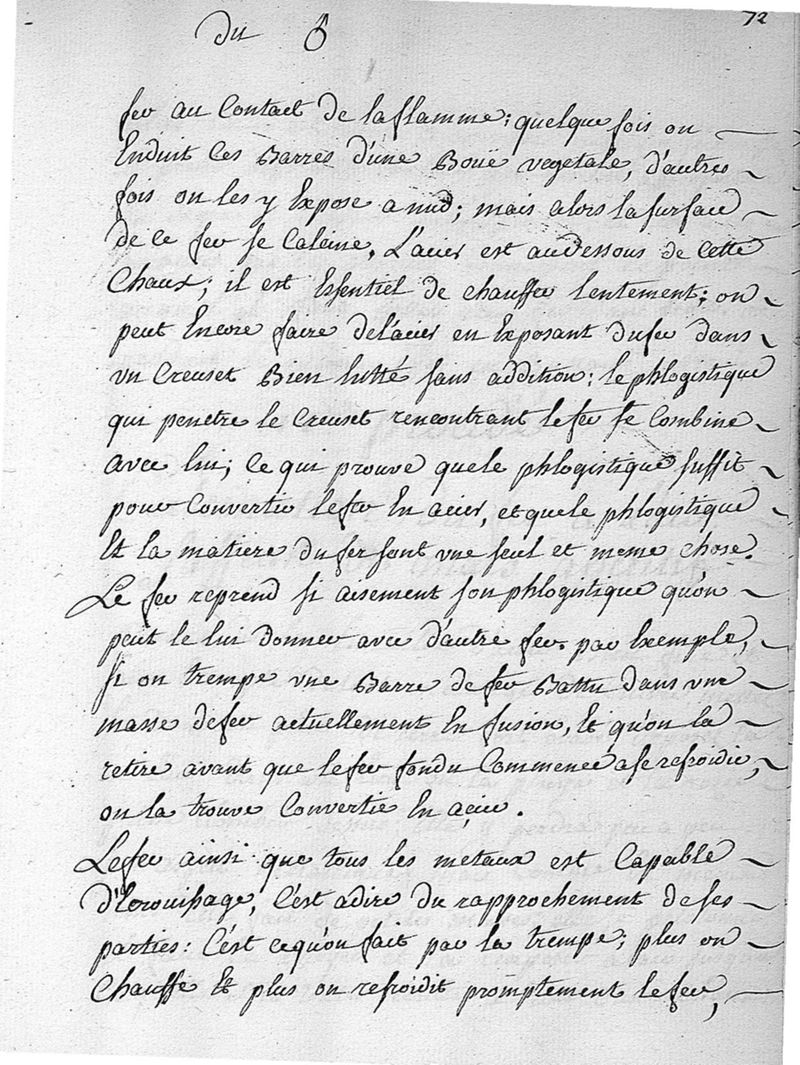 72
Du ♂
fer au Contact de la flamme; quelque fois on
Enduit Ces Barres d'une Boüe vegetale, d'autres
fois on les y Expose a nud; mais alors la surface
de ce fer se Calcine, L'acier est audessous de Cette
Chaux; il est Essentiel de chauffer lentement; on
peut Encore faire de l'acier en Exposant du fer dans
un Creuset Bien lutté sans addition; le phlogistique
qui penetre le Creuset rencontrant le fer se Combine
avec lui; Ce qui prouve que le phlogistique suffit
pour Convertir le fer En acier, et que le phlogistique
Et la matiere du fer sont une seul et meme chose.
Le fer reprend si aisement son phlogistique qu'on
peut le lui donner avec d'autre fer. par Exemple,
si on trempe une Barre de fer Battu dans une
masse de fer actuellement En fusion, Et qu'on la
retire avant que le fer fondu Commence a se refroidir,
on la trouve Convertie En acier.
Le fer ainsi que tous les metaux est Capable
d'Ecrouissage, C'est a dire du rapprochement de ses
parties: C'est ce qu'on fait par la trempe; plus on
Chauffe Et plus on refroidit promptement le fer,